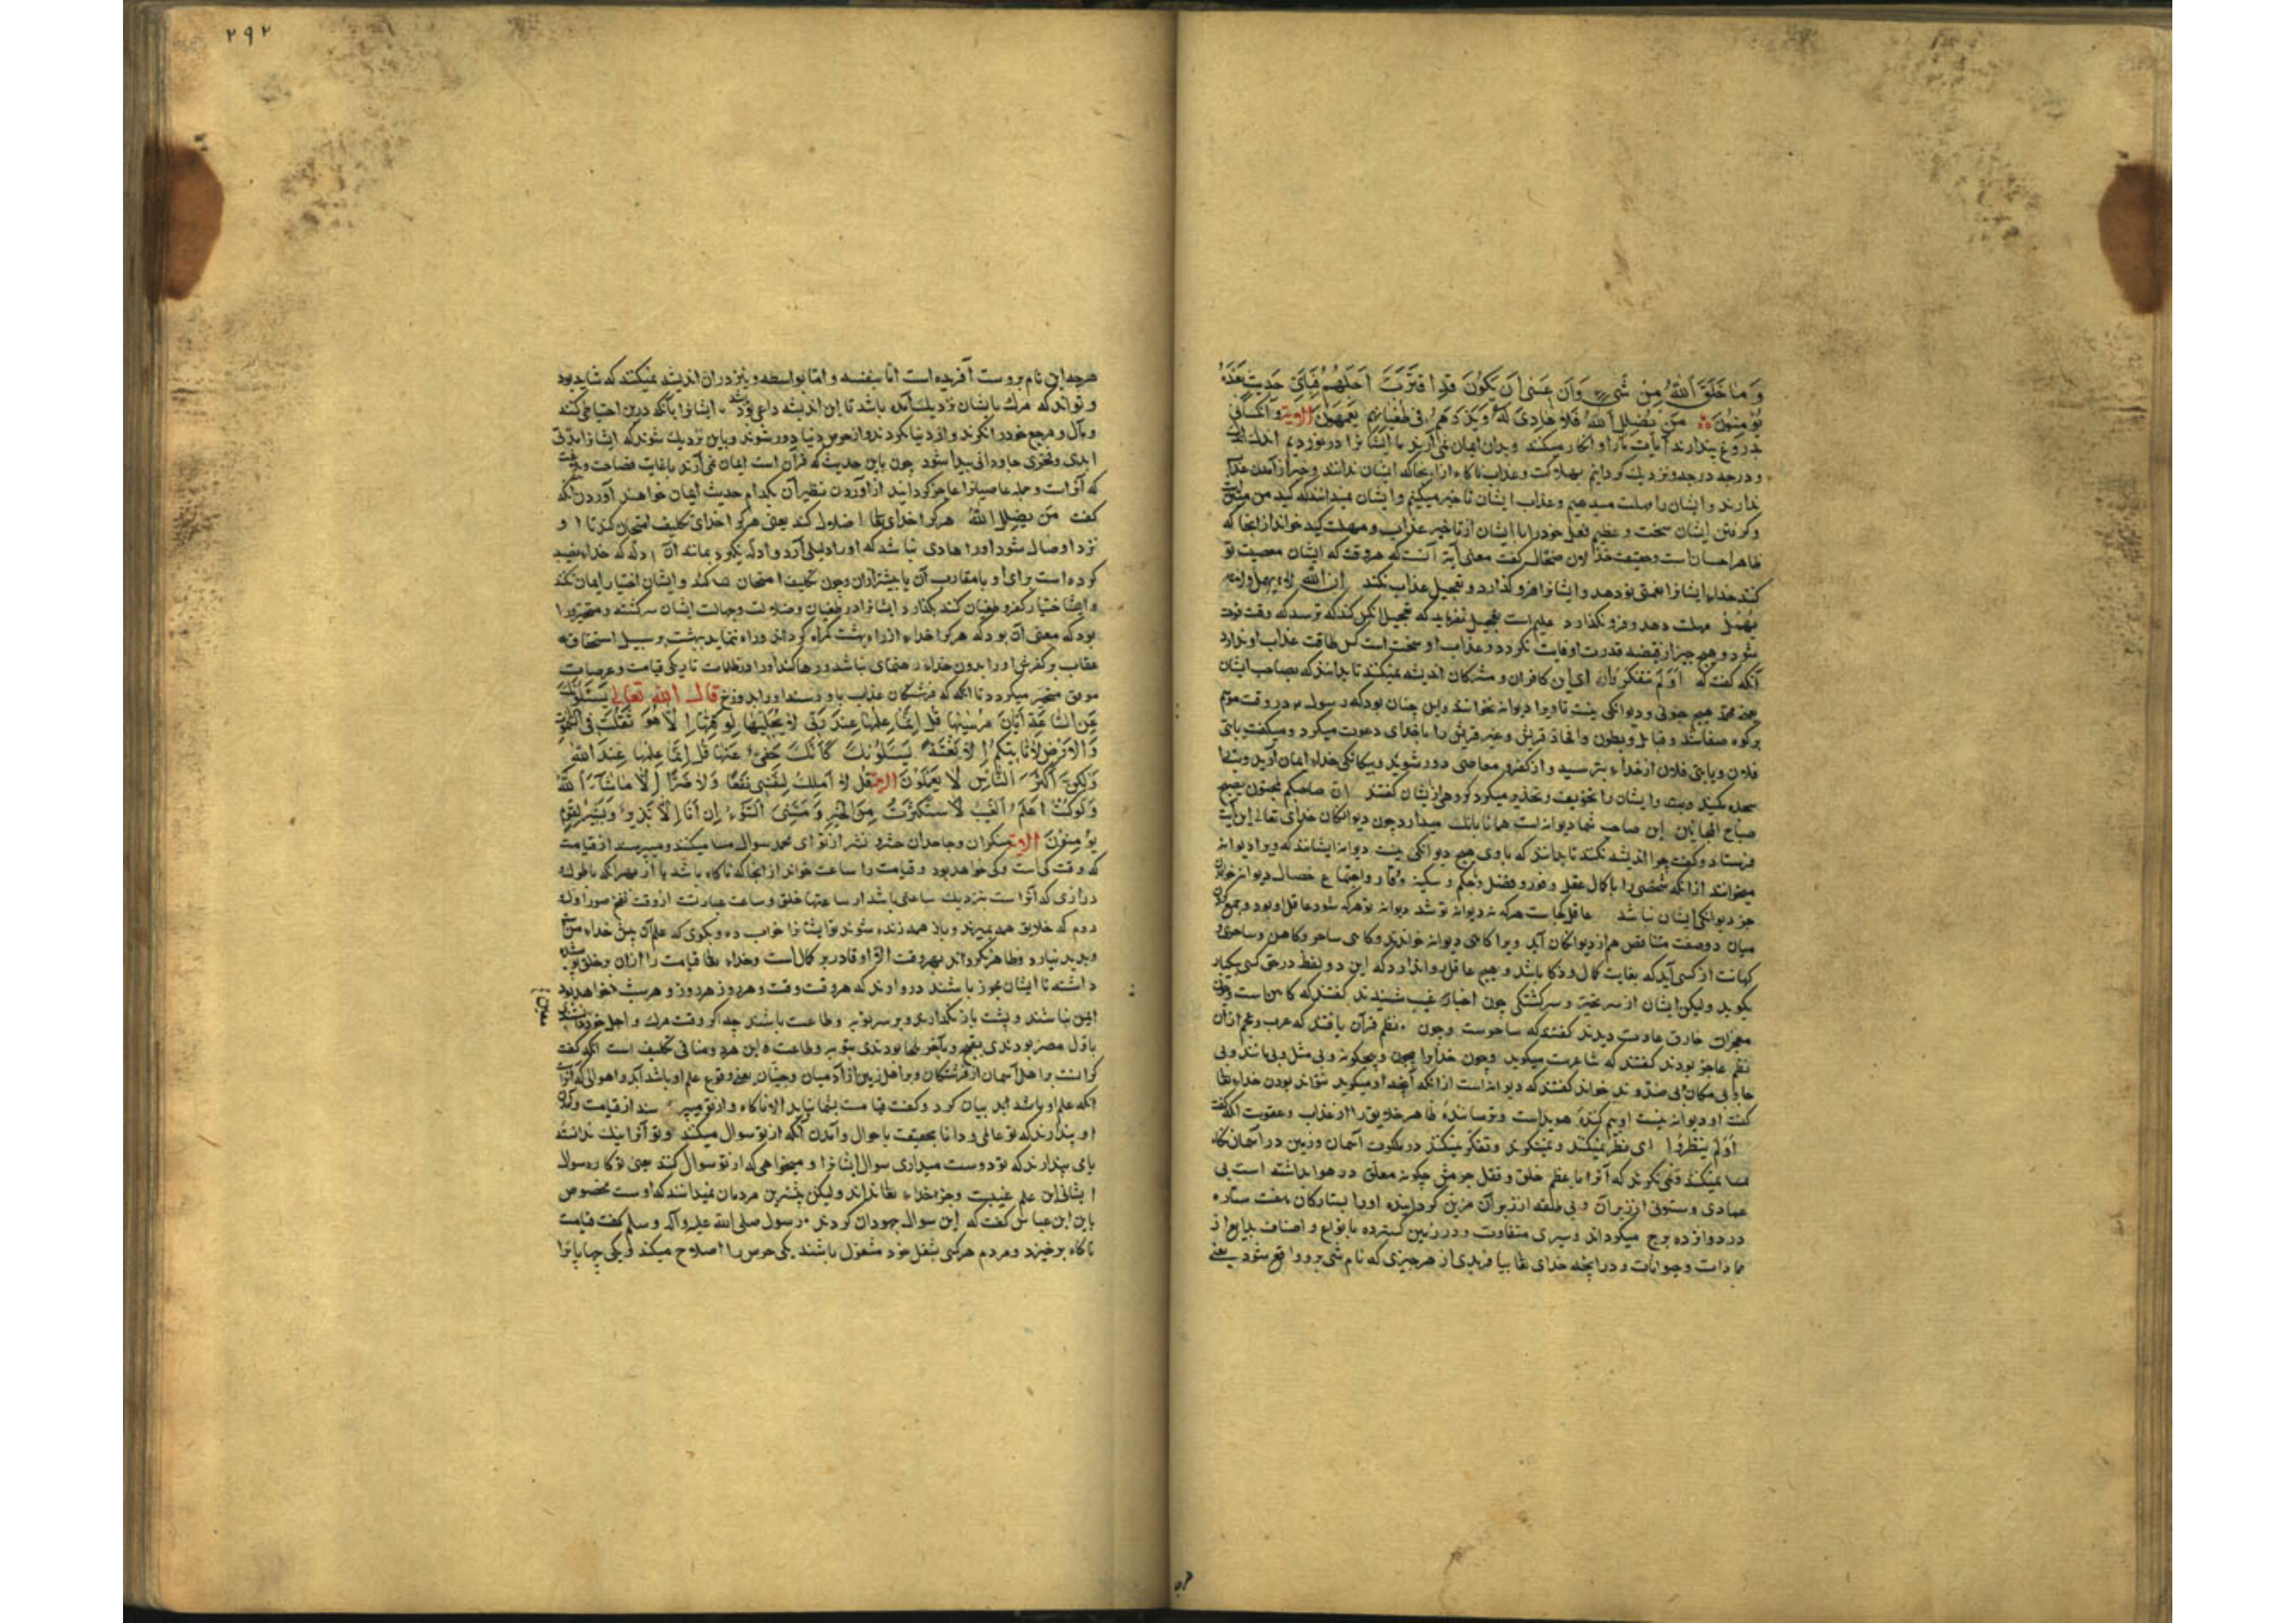 وَمَا خَلَقَ اللّٰهُ مِنْ شَيْءٍ وَاَنْ عَسٰى اَنْ يَكُونَ قَدِ اقْتَرَبَ اَجَلُهُمْ فَبِاَيِّ حَدِيثٍ بَعْدَهُ
يُؤْمِنُونَ مَنْ يُضْلِلِ اللّٰهُ فَلَا هَادِيَ لَهُ وَيَذَرُهُمْ فِي طُغْيَانِهِمْ يَعْمَهُونَ الايه و آنکسانی
بدروغ بندارند آیات مارا و انکار میکنند وبدان ایمان نمی آرند ما ایشانرا درنوردیم اندک اندک
و درجه درجه ونزدیک کردانیم بهلاکت وعذاب ناکاه ازانجا که ایشان ندانند وخبر از آمدن عذاب
ندارند وایشان را مهلت میدهیم وعذاب ایشان تاخیر میکنیم وایشان نمیدانند که کید من متین است
وکرفتن ایشان سخت و عظیم فعل خودرا با ایشان از تاخیر عذاب و مهلت کید خواند از انجا که
ظاهر احسان است وحقیقت خذلان ضحاک کفت معنی آیة آنست که هر وقت که ایشان معصیت نو
کنند خداء ایشانرا نعمتی نو دهد وایشانرا فرو کذارد و تعجیل عذاب نکند ان الله لا یهمل ولکنه
یمهل مهلت دهد وفرو نکذارد
شود وهیچ چیز از قبضه قدرت او فایت نکردد وعذاب او سخت است کس طاقت عذاب او ندارد
آنکه کفت که اَوَلَمْ يَتَفَكَّرُوا ای این کافران و مشرکان اندیشه نمیکنند تا بدانند که بصاحب ایشان
یعنی محمد هیچ جنونی و دیوانکی نیست تا ویرا دیوانه نخوانند واین چنان بود که رسول در وقت موسم
برکوه صفا شد و قبایل وبطون وافخاذ قریش وغیر قریش را با خدای دعوت میکرد ومیکفت یا بنی
فلان ویا بنی فلان از خداء بترسید و از کفر و معاصی دور شوید وبیکانکی خداء ایمان آرید وبتها
سجده مکنید وایشان را تخویف وتحذیر میکرد کروهی از ایشان کفتند ان صاحبکم لمجنون یصیح
صباح المجانین این صاحب شما دیوانه است همانا بانک میدارد چون دیوانکان خدای تعالی این آیت
فرستاد وکفت چرا اندیشه نکنند تا بدانند که با وی هیچ دیوانکی نیست دیوانه ایشانند که ویرا دیوانه
میخوانند از انکه شخصی را با کمال عقل و وفور وفضل وحلم و سکینه ووقار واجتماع خصال دیوانه خواندن
جز دیوانکی ایشان نباشد عاقل کجاست هرکه نه دیوانه تو شد دیوانه تو هرکه شود عاقل او بود وجمع کردن
میان دو صفت متناقض هم از دیوانکان آید ویرا کاهی دیوانه خوانند وکاهی ساحر وکاهن وساحری و
کهانت از کسی آید که بغایت کمال وذکا باشد وهیچ عاقل روا ندارد که این دو لفظ در حق کسی بکبار
بکوید ولیکن ایشان از سر تحیر و سرکشتکی چون اخبار غیب شنیدند کفتند که کاهن است وچون
معجزات خارق عادت دیدند کفتند که ساحرست وچون نظم قرآن یافتند که عرب وعجم از آن
نظم عاجز بودند کفتند که شاعرست میکوید وچون خدا را بیچون و بیچکونه وبی مثل وبی مانند وبی
جا وبی مکان بی ضد و ند خواند کفتند که دیوانه است از انکه آنچه او میکوید نتواند بودن خداء تعا
کفت او دیوانه نیست او بیم کننده هویداست وترساننده ظاهر خلایق را از عذاب وعقوبت انکه کفت
اَوَلَمْ يَنْظُرُوا ای نظر نمیکنند و نمینکرند وتفکر نمیکنند در ملکوت آسمان و زمین در آسمان نکاه
نمیکنند ونمی نکرند که آنرا با عظم خلق و ثقل جرمش چکونه معلق در هوا بداشته است بی
عمادی وستونی از زیر آن وبی علاقه از زبر آن مزین کردانیده اورا بستارکان هفت ستاره
در دوازده برج میکرداند وسیری متفاوت ودر زمین کسترده بانواع و اصناف بدایع از
جمادات وحیوانات ودر انچه خدای تعا بیافریدی از هرچیزی که نام شی برو واقع شود یعنی
۲۹۲
هرچه این نام بروست آفریده است اما بنفسه و اما بواسطه ونیز دران اندیشه نمیکنند که شاید بود
و تواند که مرک بایشان نزدیک آمده باشد تا این اندیشه داعی بود ایشانرا بآنکه درین احتیاطی کنند
ومآل ومرجع خودرا نکرند واز دنیا کردند واز حرص دنیا دور شوند وباین نزدیک شوند که ایشانرا مدتی
ابدی وفخری جاودانی پیدا شود چون باین حدیث که قرآن است ایمان نمی آرند با غایت فصاحت
که آنراست وجمله عاصیانرا عاجز کردانید از آوردن نظیر آن بکدام حدیث ایمان خواهند آوردن آنکه
کفت مَنْ يُضْلِلِ اللّٰهُ هرکرا خدای تعا اضلال کند یعنی هرکرا خدای تکلیف امتحان کند تا او
نزد او ضال شود اورا هادی نباشد که اورا دلیلی آرد
کرده است برای او یا مقارب آن یا بیشتر از آن وچون تکلیف امتحان کند وایشان اختیار ایمان نکند
واینها اختیار کفر و طغیان کند بکذارد ایشانرا در طغیان وضلالت وجهالت ایشان سرکشته ومتحیر و روا
بود که معنی آن بود که هرکرا خداء از راه بهشت کمراه کرداند وراه ننماید ببهشت بر سبیل استحقاق
عقاب بر کفرش اورا بدون خداء رهنمای نباشد ورها کند اورا در ظلمات تاریکی قیامت وعرصات
موقف متحیر میکردد تا انکه که فرشتکان عذاب باو رسند اورا بدوزخ قال الله تعالی يَسْئَلُونَكَ
عَنِ السَّاعَةِ اَيَّانَ مُرْسٰيهَا قُلْ اِنَّمَا عِلْمُهَا عِنْدَ رَبِّي لَا يُجَلِّيهَا لِوَقْتِهَا اِلَّا هُوَ ثَقُلَتْ فِي السَّمٰوَاتِ
وَالْاَرْضِ لَا تَاْتِيكُمْ اِلَّا بَغْتَةً يَسْئَلُونَكَ كَاَنَّكَ حَفِيٌّ عَنْهَا قُلْ اِنَّمَا عِلْمُهَا عِنْدَ اللّٰهِ
وَلٰكِنَّ اَكْثَرَ النَّاسِ لَا يَعْلَمُونَ الايه قُلْ لَا اَمْلِكُ لِنَفْسِي نَفْعًا وَلَا ضَرًّا اِلَّا مَا شَاءَ اللّٰهُ
وَلَوْ كُنْتُ اَعْلَمُ الْغَيْبَ لَاسْتَكْثَرْتُ مِنَ الْخَيْرِ وَمَا مَسَّنِيَ السُّوءُ اِنْ اَنَا اِلَّا نَذِيرٌ وَبَشِيرٌ لِقَوْمٍ
يُؤْمِنُونَ الايه منکران وجاحدان حشر و نشر از تو ای محمد سوال میکنند ومیپرسند از قیامت
که وقت کی است وکی خواهد بود وقیامت را ساعت خواند از انجا که ناکاه باشد یا از بهر آنکه با طول و
درازی که آنراست بنزدیک ساعتی باشد از ساعتها خلق وساعت عبارتست از وقت نفخ صور اول و
دوم که خلایق همه بمیرند وباز همه زنده شوند تو ایشانرا جواب ده وبکوی که علم آن پیش خداء منست
وپدید نیارد وظاهر نکرداند بهر وقت الا او قادر بر کمال است وخداء تعا قیامت را از آن برخلق پوشیده
داشته تا ایشان مجوز باشند درو ارند که هر وقت وقت وهر روز هر روز و هر شب خواهد بود
ایمن نباشند وپشت باز نکذارند وبر سر توبه وطاعت باشند چه اکر وقت مرک واجل خود دانستندی
باول مصر بودندی بقبیح وبآخر ملجا بودندی بتوبه وطاعت و این هر دو منافی تکلیف است انکه کفت
کرانست بر اهل آسمان از فرشتکان وبر اهل زمین از آدمیان وجنیان یعنی وقوع علم او باشد
انکه علم او باشد ابد بیان کرد وکفت قیامت بشما نیاید الا ناکاه واز تو میپرسند از قیامت
او پندارند که تو عالمی ودانا بحقیقت باحوال وآمدن آنکه از تو سوال میکنند وتو آنرا نیک ندانسته
یا می پندارند که تو دوست میداری سوال ایشانرا و میخواهی که از تو سوال کنند یعنی تو کاره سوال
ایشانی این علم غیبست وجز خداء تعا نداند ولیکن بیشترین مردمان نمیدانند که اوست مخصوص
باین ابن عباس کفت که این سوال جهودان کردند رسول صلی الله علیه وآله وسلم کفت قیامت
ناکاه برخیزد ومردم هرکسی بشغل خود مشغول باشند یکی حوض را اصلاح میکند ویکی چهارپایانرا